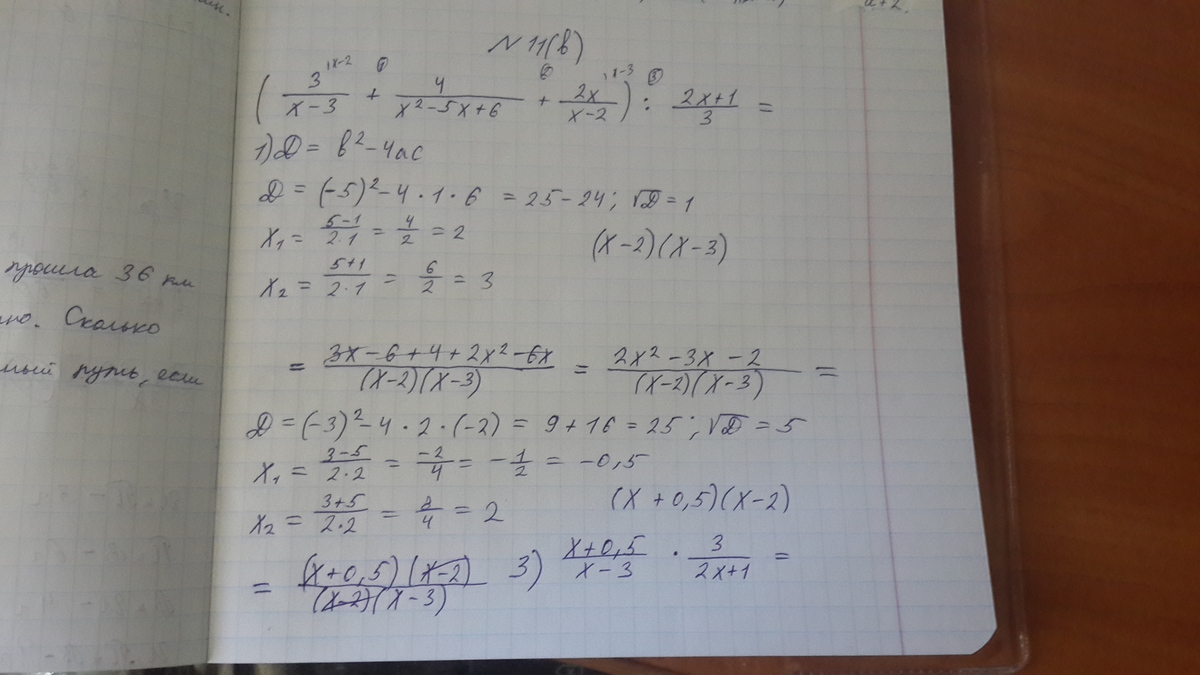 a+2.
N 11(в)
( 3/(x-3) ^{1x-2} + ① 4/(x²-5x+6) + ② 2x/(x-2) ^{1x-3} ) : ③ (2x+1)/3 =
1) D = b²-4ac
D = (-5)²-4·1·6 = 25-24; √D=1
x₁ = (5-1)/(2·1) = 4/2 = 2
(x-2)(x-3)
x₂ = (5+1)/(2·1) = 6/2 = 3
прошла 36 км
но. Сколько
путь, если
= (3x-6+4+2x²-6x)/((x-2)(x-3)) = (2x²-3x-2)/((x-2)(x-3)) =
D = (-3)²-4·2·(-2) = 9+16=25; √D=5
x₁ = (3-5)/(2·2) = -2/4 = -1/2 = -0,5
(x+0,5)(x-2)
x₂ = (3+5)/(2·2) = 8/4 = 2
= ((x+0,5)(x-2))/((x-2)(x-3)) 3) (x+0,5)/(x-3) · 3/(2x+1) =